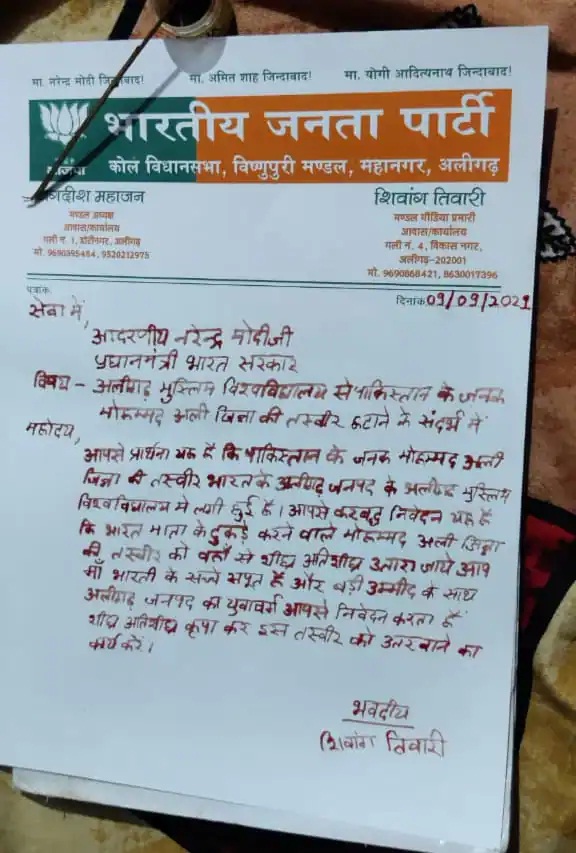 मा. नरेन्द्र मोदी जिन्दाबाद! मा. अमित शाह जिन्दाबाद! मा. योगी आदित्यनाथ जिन्दाबाद!
भारतीय जनता पार्टी
भाजपा कोल विधानसभा, विष्णुपुरी मण्डल, महानगर, अलीगढ़
जगदीश महाजन
मण्डल अध्यक्ष
आवास/कार्यालय
गली नं. 1, डोरीनगर, अलीगढ़
मो. 9690395454, 9520212975
शिवांग तिवारी
मण्डल मीडिया प्रभारी
आवास/कार्यालय
गली नं. 4, विकास नगर,
अलीगढ़-202001
मो. 9690868421, 8630017396
पत्रांक
दिनांक 09/09/2021
सेवा में,
आदरणीय नरेन्द्र मोदीजी
प्रधानमंत्री भारत सरकार
विषय - अलीगढ़ मुस्लिम विश्वविद्यालय से पाकिस्तान के जनक
मोहम्मद अली जिन्ना की तस्वीर हटाने के संदर्भ में
महोदय,
आपसे प्रार्थना यह है कि पाकिस्तान के जनक मोहम्मद अली
जिन्ना की तस्वीर भारत के अलीगढ़ जनपद के अलीगढ़ मुस्लिम
विश्वविद्यालय में लगी हुई है। आपसे करबद्ध निवेदन यह है
कि भारत माता के टुकड़े करने वाले मोहम्मद अली जिन्ना
की तस्वीर को वहाँ से शीघ्र अतिशीघ्र उतारा जाये आप
माँ भारती के सच्चे सपूत है और बड़ी उम्मीद के साथ
अलीगढ़ जनपद का युवावर्ग आपसे निवेदन करता है
शीघ्र अतिशीघ्र कृपा कर इस तस्वीर को उतरवाने का
कार्य करें।
भवदीय
शिवांग तिवारी